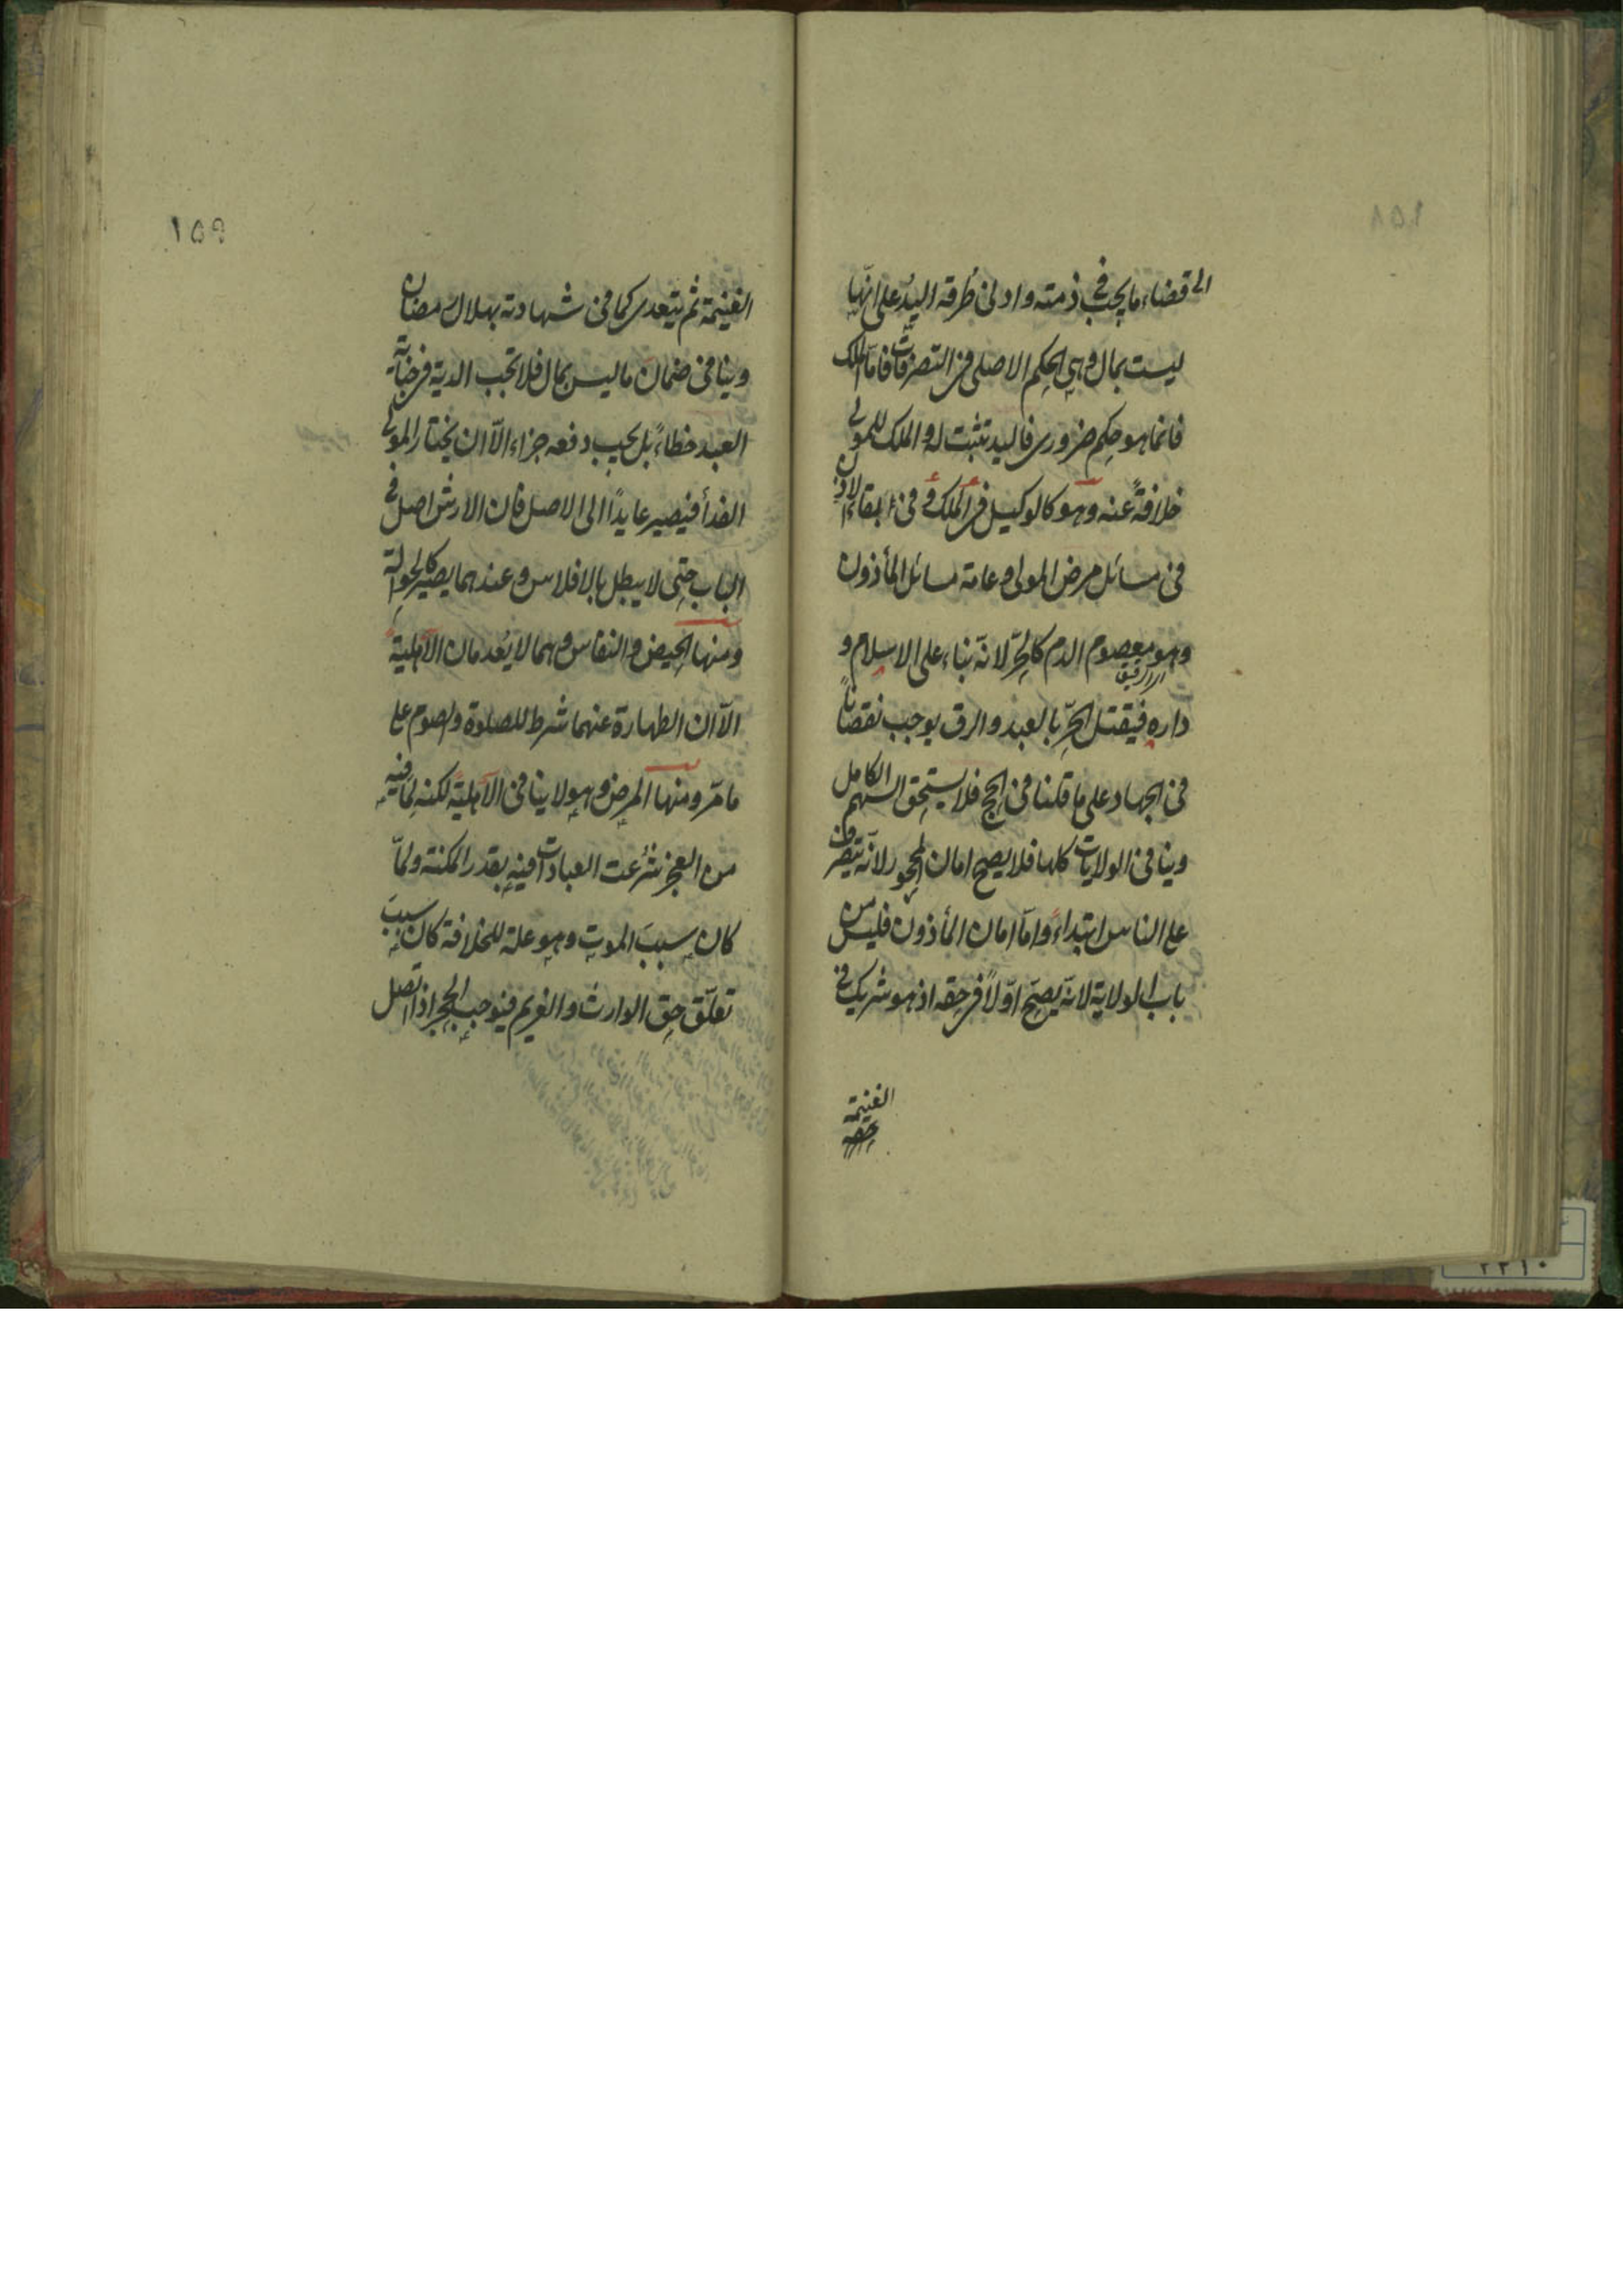 ١٥٨
الى قضاء ما يجب في ذمته وادنى طُرقه اليدُ على انّها
ليست بمال وهي الحكم الاصلى فى التصرفات فامّا الملك
فانما هو حكم ضرورى فاليد تثبت له والملك للمولى
خلافةً عنه وهو كالوكيل فى الملك و فى بقاء الاذن
فى مسائل مرض المولى و عامة مسائل المأذون
وهو معصوم الدم كالحرّ لانّه بناء على الاسلام و
داره فيقتل الحرّ بالعبد والرق يوجب نقصاناً
فى الجهاد على ما قلنا فى الحج فلا يستحق السهم الكامل
وينافى الولايات كلها فلا يصح امان المحجور لانّه تصرف
على الناس ابتداءً وامّا امان المأذون فليس من
باب الولاية لانّه يصحّ اوّلاً فى حقه اذ هو شريك فى
الغنيمة
١٥٩
الغنيمة ثم يتعدى كما فى شهادته بهلال رمضان
وينافى ضمان ما ليس بمال فلا تجب الدية فى جناية
العبد خطاءً بل يجب دفعه جزاء الّا ان يختار المولى
الفدأ فيصير عايداً الى الاصل فان الارش اصل فى
الباب حتى لا يبطل بالافلاس و عندهما يصير كالحوالة
ومنها الحيض والنفاس وهما لا يُعدمان الاهلية
الّا ان الطهارة عنهما شرط للصلوة والصوم على
ما مرّ ومنها المرض وهو لا ينافى الاهليّة لكنه لما فيه
من العجز شُرعت العبادات فيه بقدر المكنة ولمّا
كان سببَ الموت وهو علة للخلافة كان سببَ
تعلّق حق الوارث والغريم فيوجب الحجر اذا اتصل